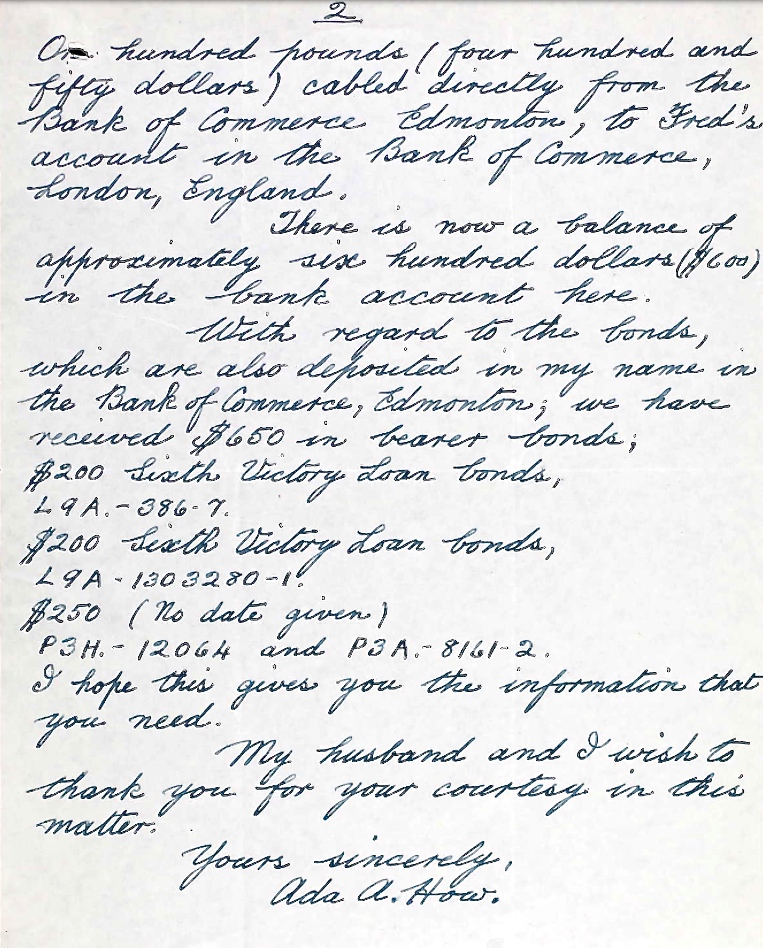 2
One hundred pounds (four hundred and
fifty dollars) cabled directly from the
Bank of Commerce Edmonton, to Fred's
account in the Bank of Commerce,
London, England.
There is now a balance of
approximately six hundred dollars ($600)
in the bank account here.
With regard to the bonds,
which are also deposited in my name in
the Bank of Commerce, Edmonton; we have
received $650 in bearer bonds;
$200 Sixth Victory Loan bonds,
L9A.-386-7.
$200 Sixth Victory Loan bonds,
L9A-1303280-1.
$250 (No date given)
P3H.-12064 and P3A.-8161-2.
I hope this gives you the information that
you need.
My husband and I wish to
thank you for your courtesy in this
matter.
Yours sincerely,
Ada A. How.